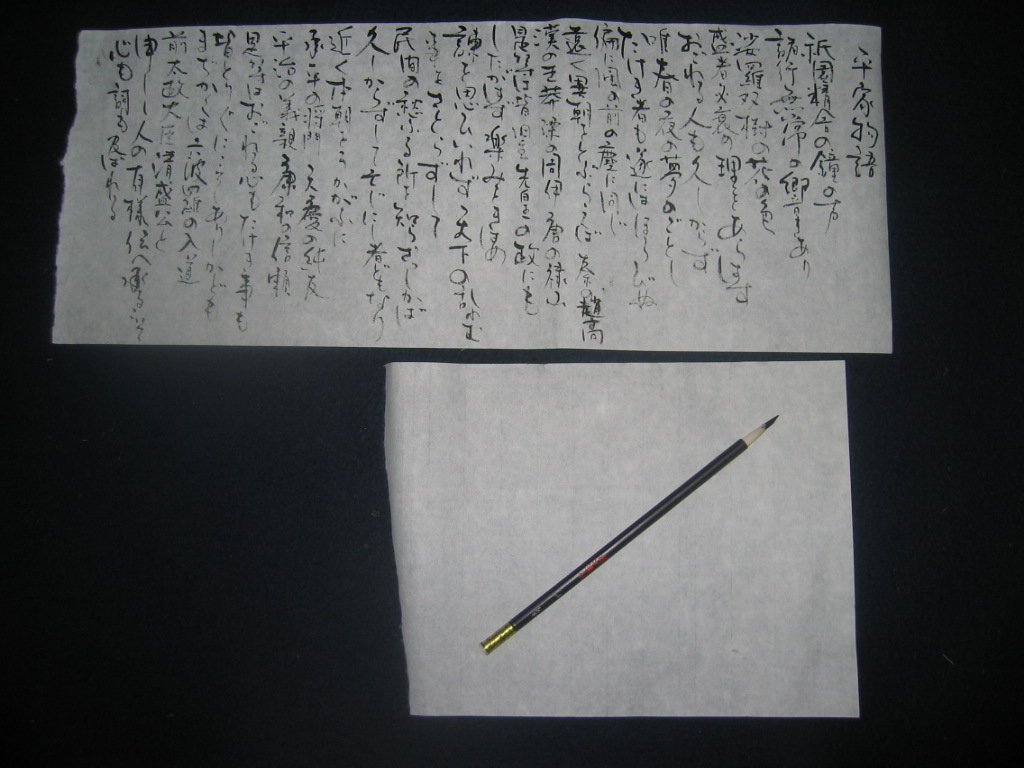 平家物語
祇園精舎の鐘の声
諸行無常の響きあり
娑羅双樹の花の色
盛者必衰の理をあらはす
おごれる人も久しからず
唯春の夜の夢のごとし
たけき者も遂にはほろびぬ
偏に風の前の塵に同じ
遠く異朝をとぶらへば 秦の趙高
漢の王莽 梁の周伊 唐の禄山
是等は皆旧主先皇の政にも
したがはず 楽みをきはめ
諫をも思ひいれず 天下の乱れむ
事をさとらずして
民間の愁ふる所を知らざりしかば
久しからずして亡じにし者どもなり
近く本朝をうかがふに
承平の将門 天慶の純友
平治の義親 康和の信頼
是等はおごれる心もたけき事も
皆とりどりにこそありしかども
まぢかくは 六波羅の入道
前太政大臣清盛公と
申しし人の有様 伝へ承るこそ
心も詞も及ばれね